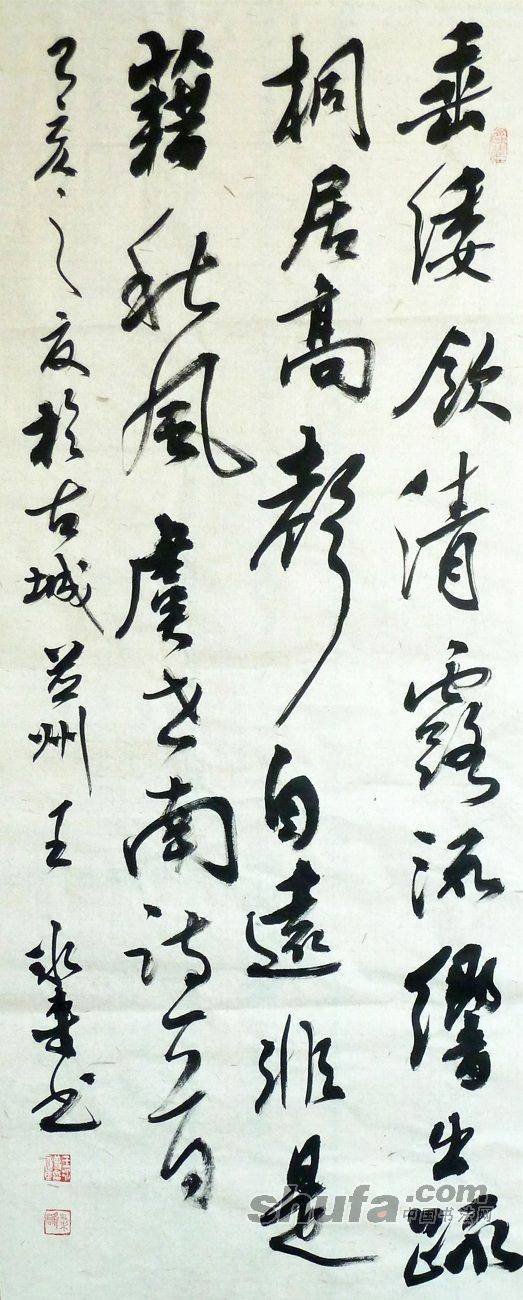 垂緌飲清露流響出疎
桐居高聲自遠非是
藉秋風虞世南詩一首
之夏於古城萣州王永素书
shufa.com
中国书法网